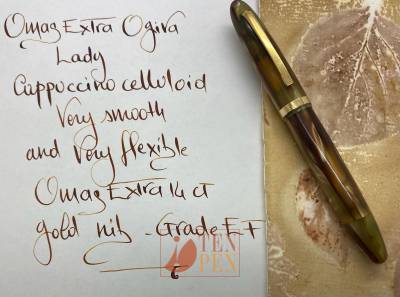 Omas Extra Ogiva
Lady
Cappuccino celluloid
Very smooth
and Very flexible
Omas Extra 14 ct
gold nib - Grade EF
TEN
PEN